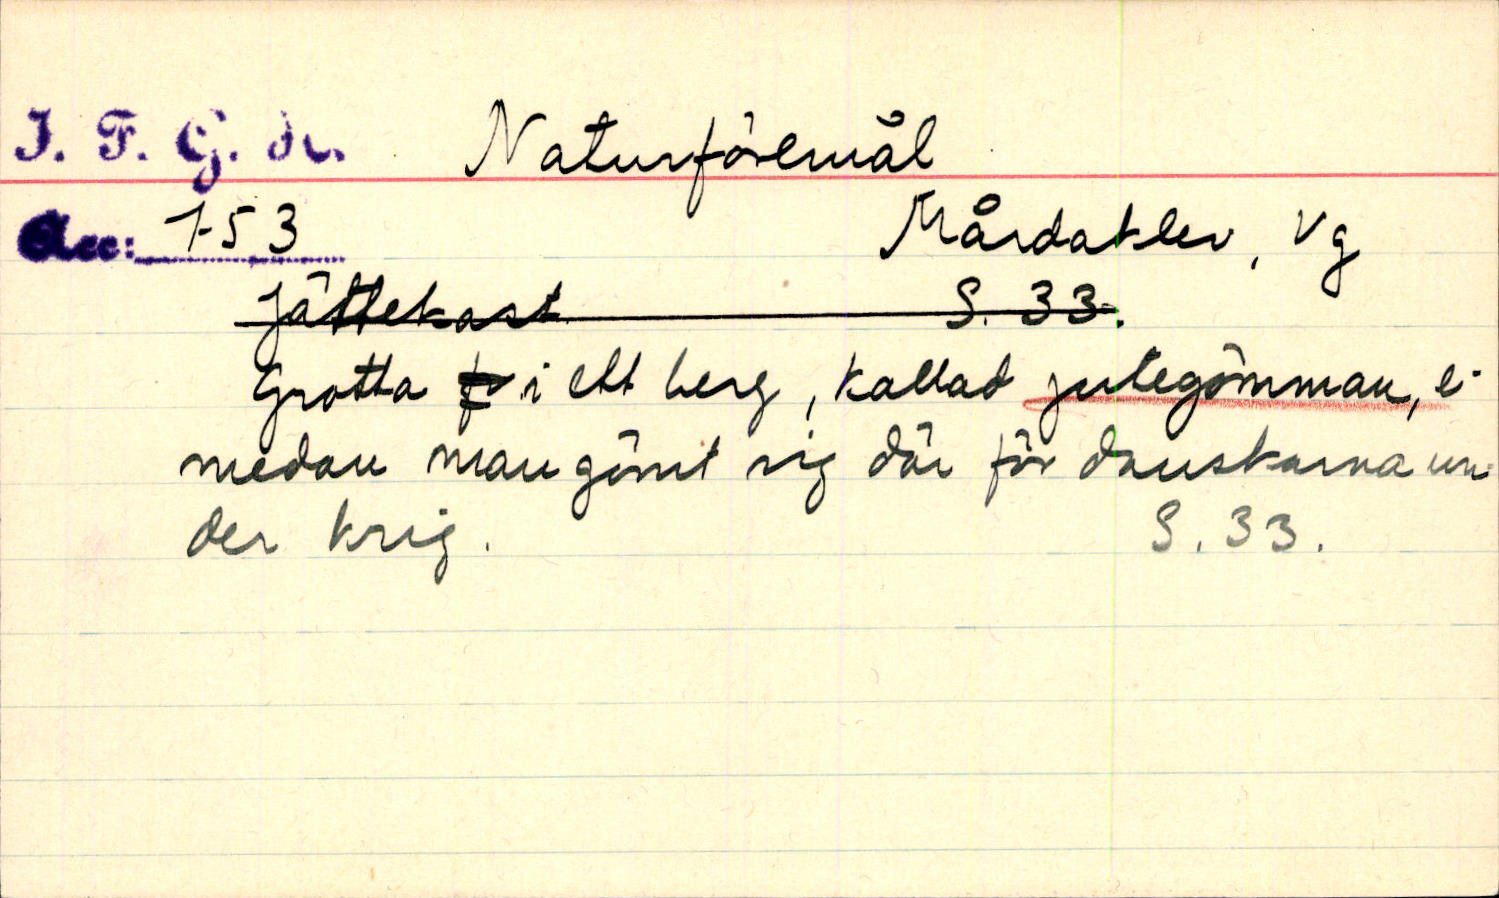 I. F. G. Nr. Naturföremål
Acc: 753 Mårdaklev, Vg
Jättekast S. 33.
Grotta i ett berg, kallad jutegömman, e-
medan man gömt sig där för danskarna un-
der krig. S. 33.